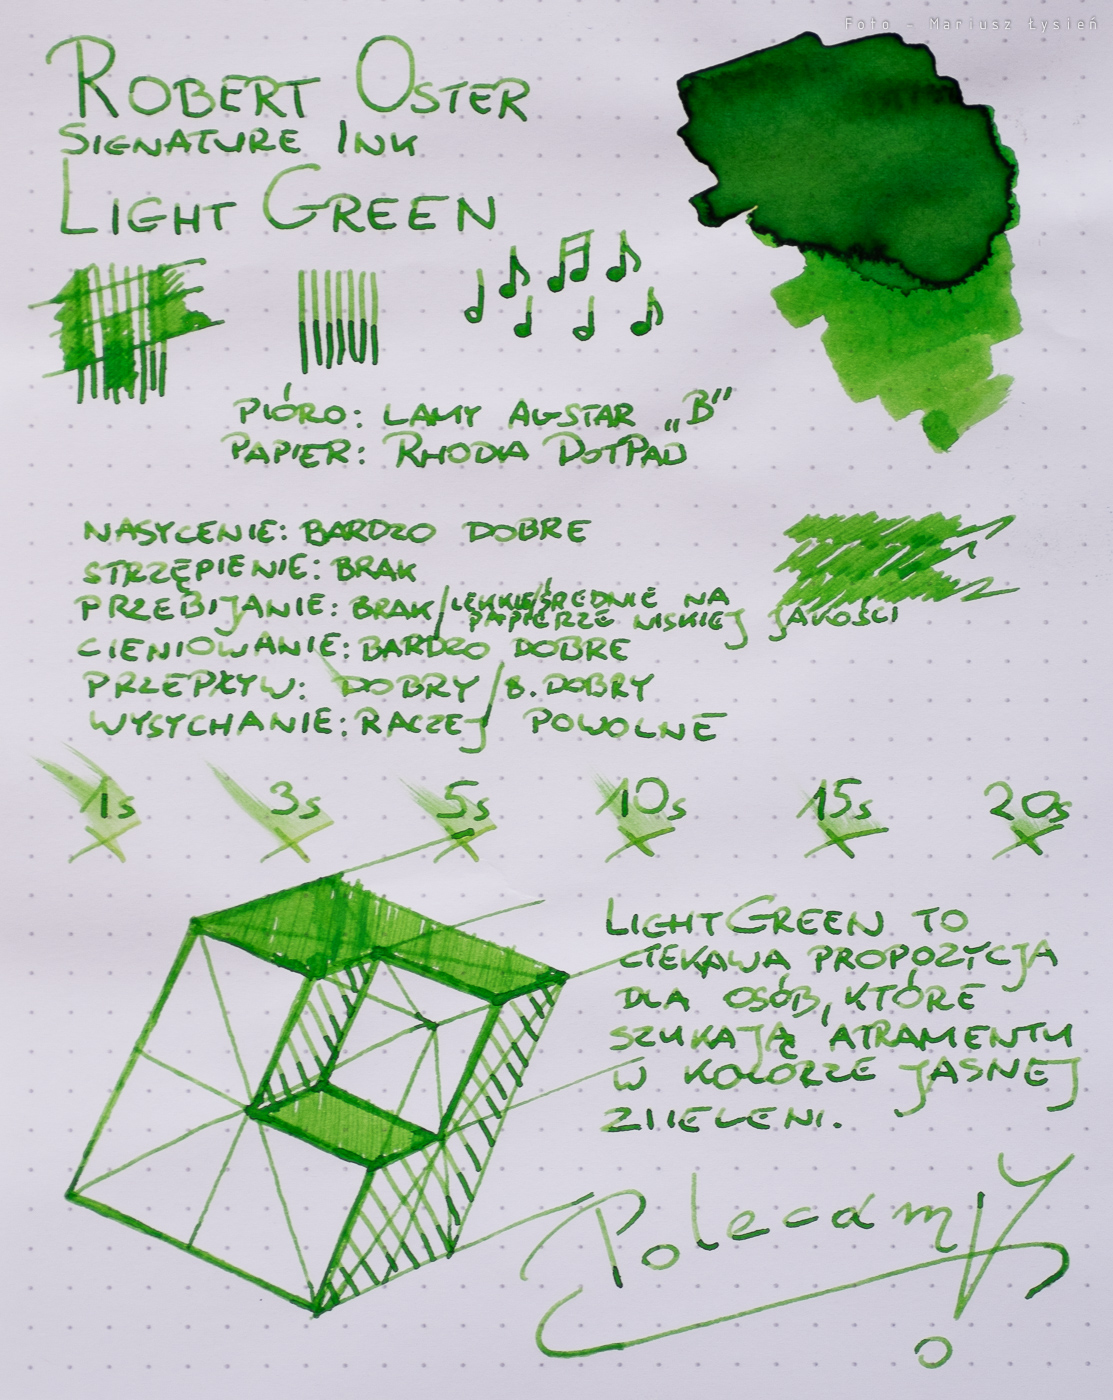 Foto - Mariusz Łysień
ROBERT OSTER
SIGNATURE INK
LIGHT GREEN
PIÓRO: LAMY AL-STAR „B”
PAPIER: RHODIA DOTPAD
NASYCENIE: BARDZO DOBRE
STRZĘPIENIE: BRAK
PRZEBIJANIE: BRAK/LEKKIE/ŚREDNIE NA
PAPIERZE NISKIEJ JAKOŚCI
CIENIOWANIE: BARDZO DOBRE
PRZEPŁYW: DOBRY/B. DOBRY
WYSYCHANIE: RACZEJ POWOLNE
1s 3s 5s 10s 15s 20s
LIGHT GREEN TO
CIEKAWA PROPOZYCJA
DLA OSÓB, KTÓRE
SZUKAJĄ ATRAMENTU
W KOLORZE JASNEJ
ZIIELENI.
Polecam!